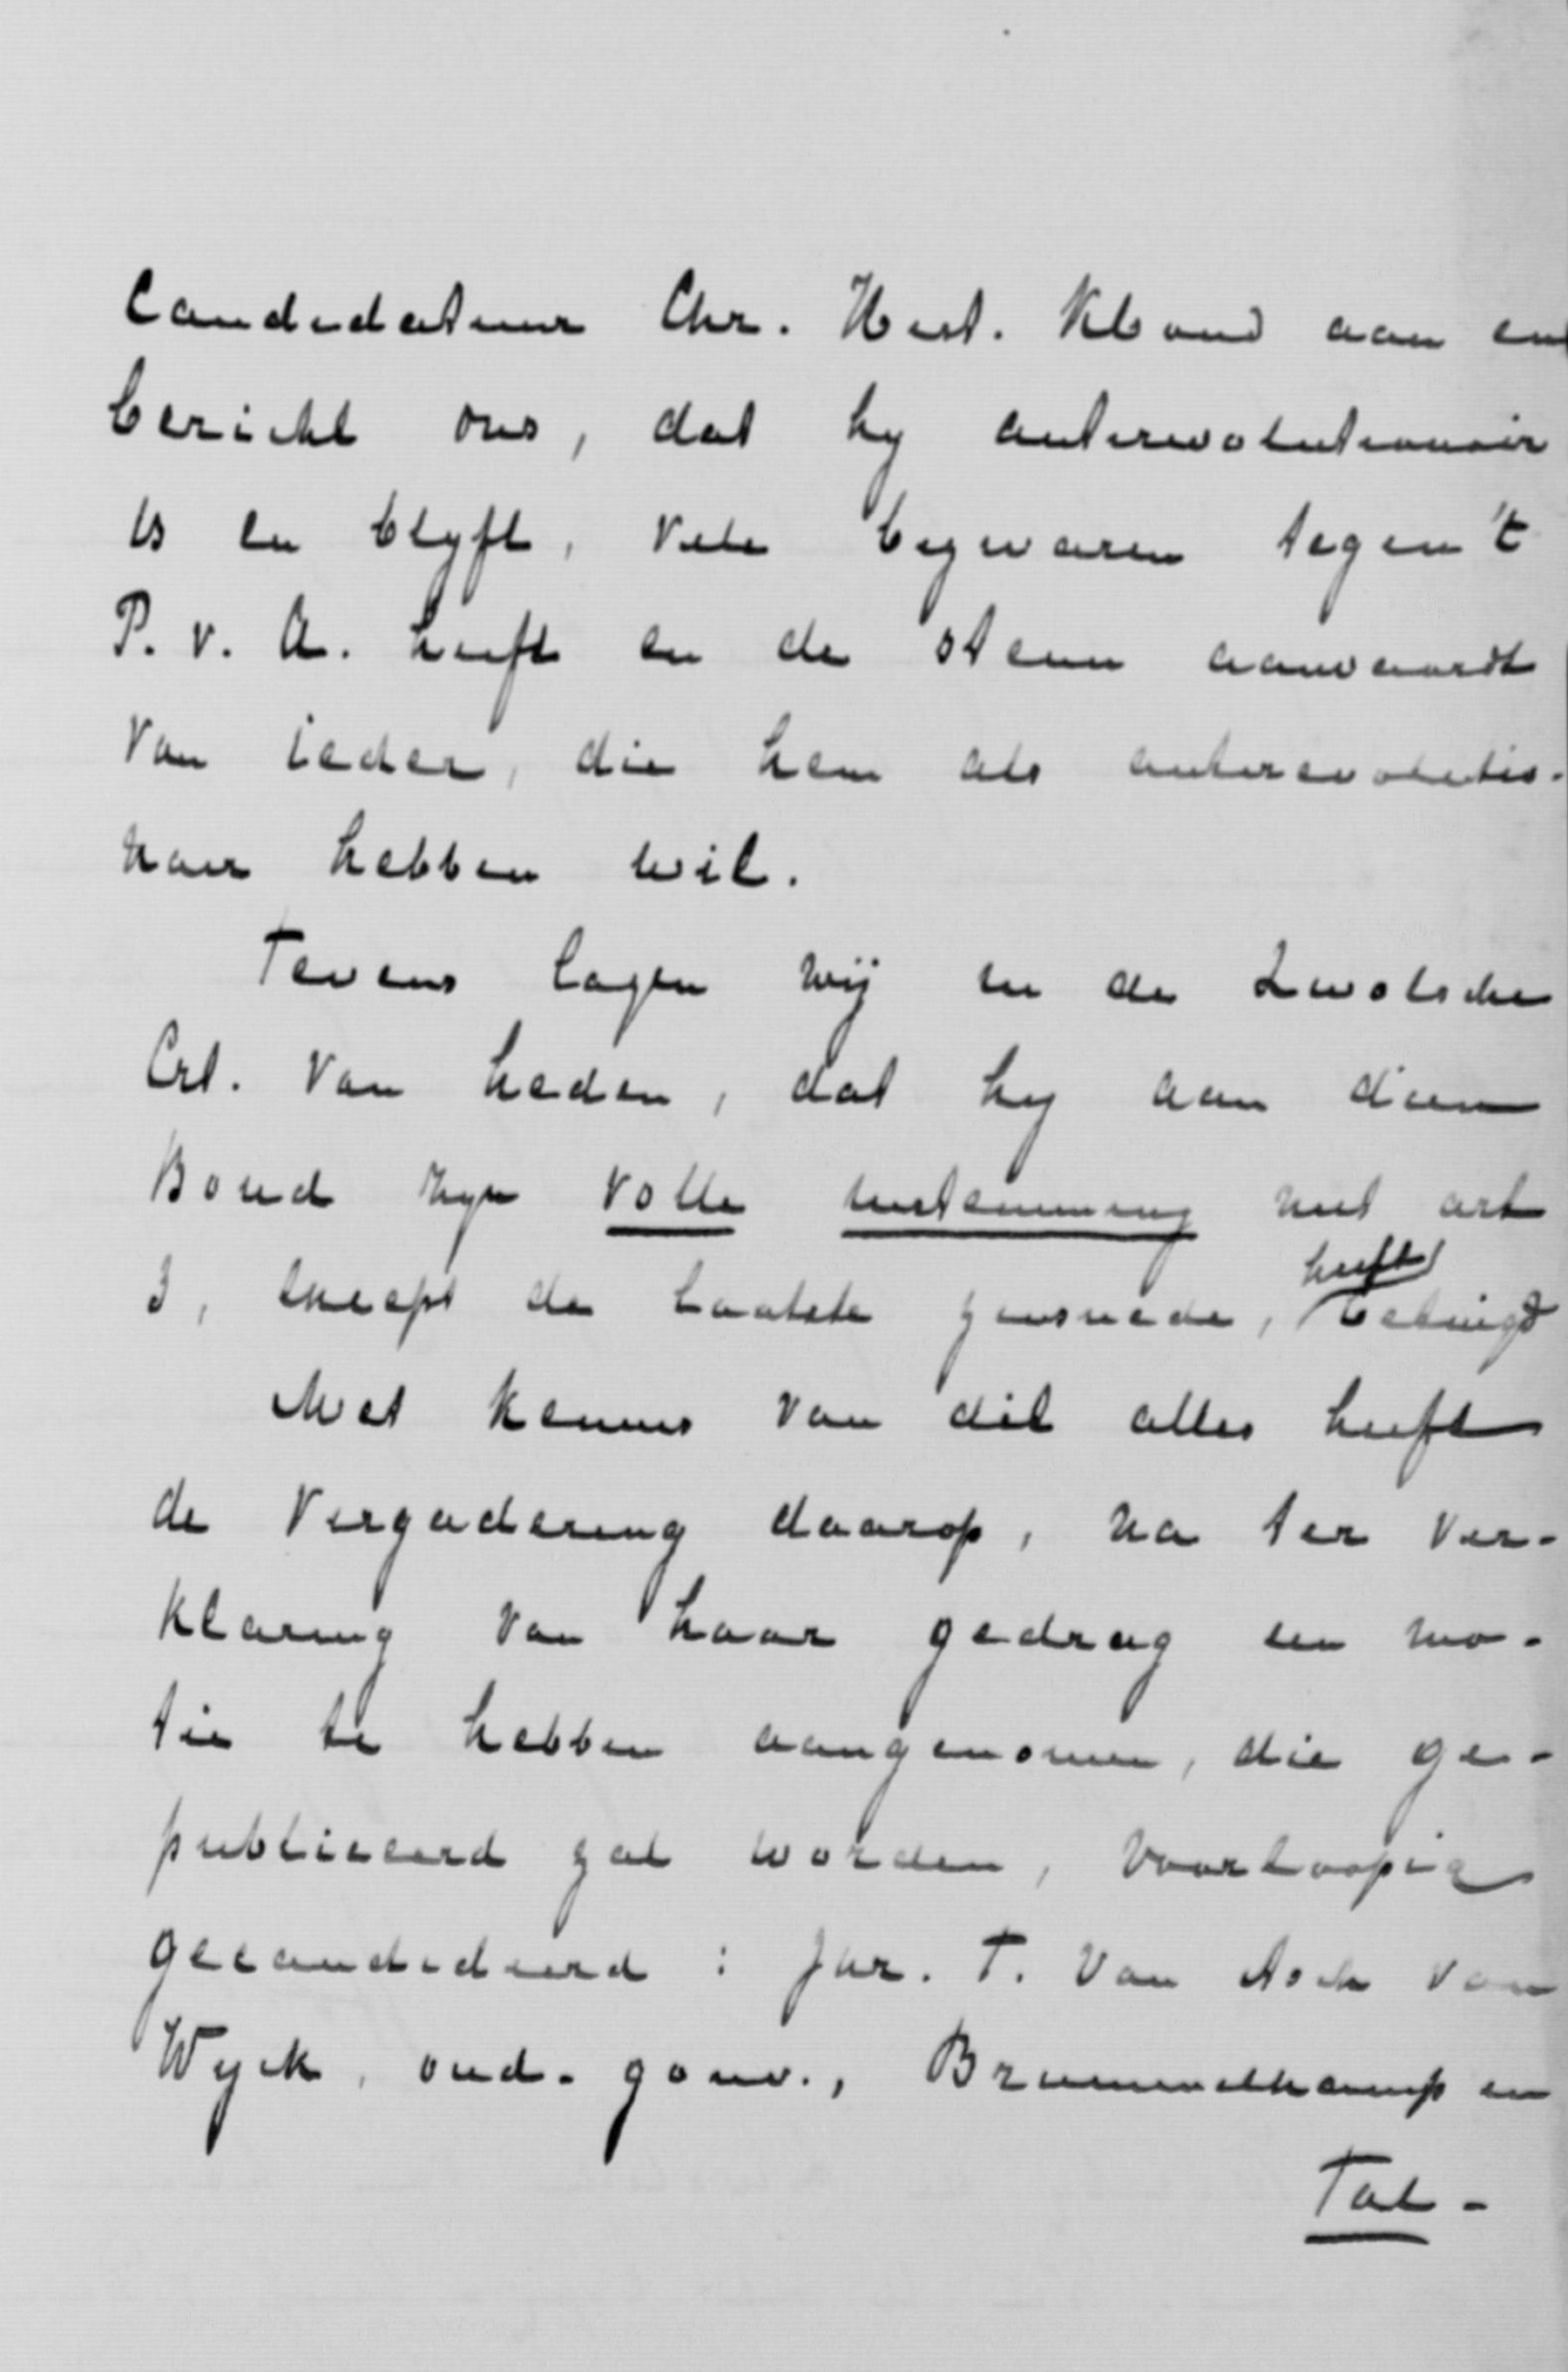 Candidatuur Chr. Hist. Kbond aan en
bericht ons, dat hy antirevolutionair
is en blyft, vele bezwaren tegen 't
P. v. A. heeft en de steun aanvaardt
van ieder, die hem als antirevolutio-
nair hebben wil.
Tevens lazen wij in de Zwolsche
Crt. van heden, dat hy aan dien
Bond zyn volle instemming met art
3, exept de laatste zinsnede, heeft betuigd
Met kennis van dit alles heeft
de Vergadering daarop, na ter ver-
klaring van haar gedrag een mo-
tie te hebben aangenomen, die ge-
publiceerd zal worden, voorloopig
gecandideerd : Jhr. T. van Asch van
Wyck, oud-gouv., Brummelkamp en
Tal-